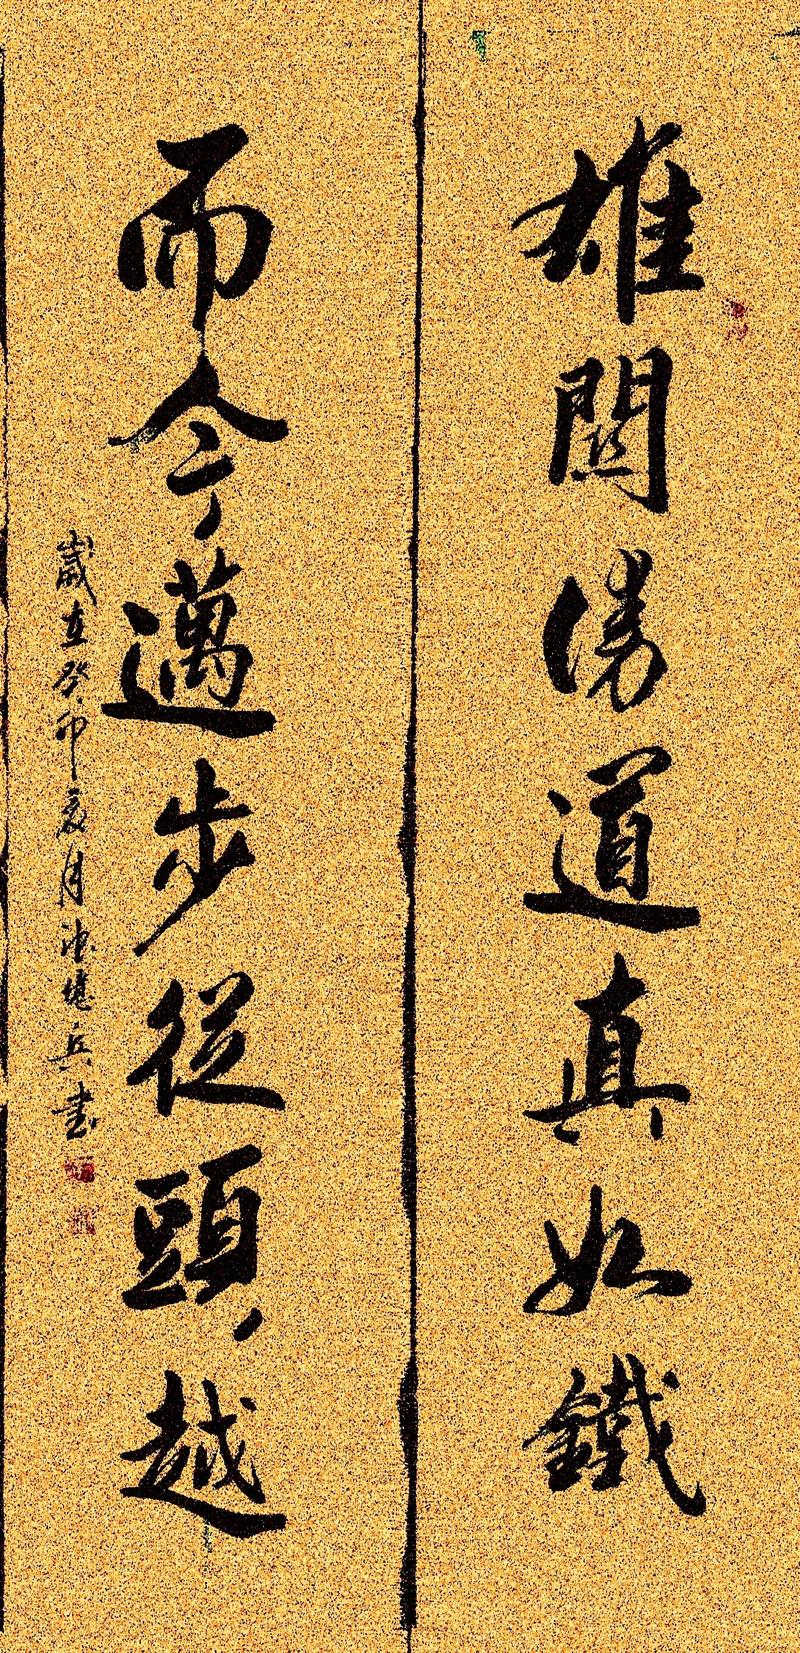 雄關漫道真如鐵
而今邁步從頭越
歲在癸卯夏月兵書